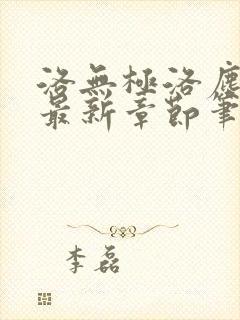 洛無極洛塵
最新章節筆
李磊